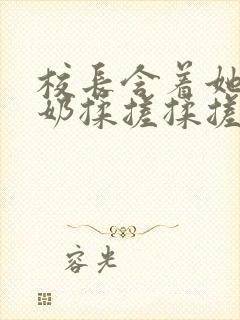 校长含着她
奶揉搓揉搓
容光